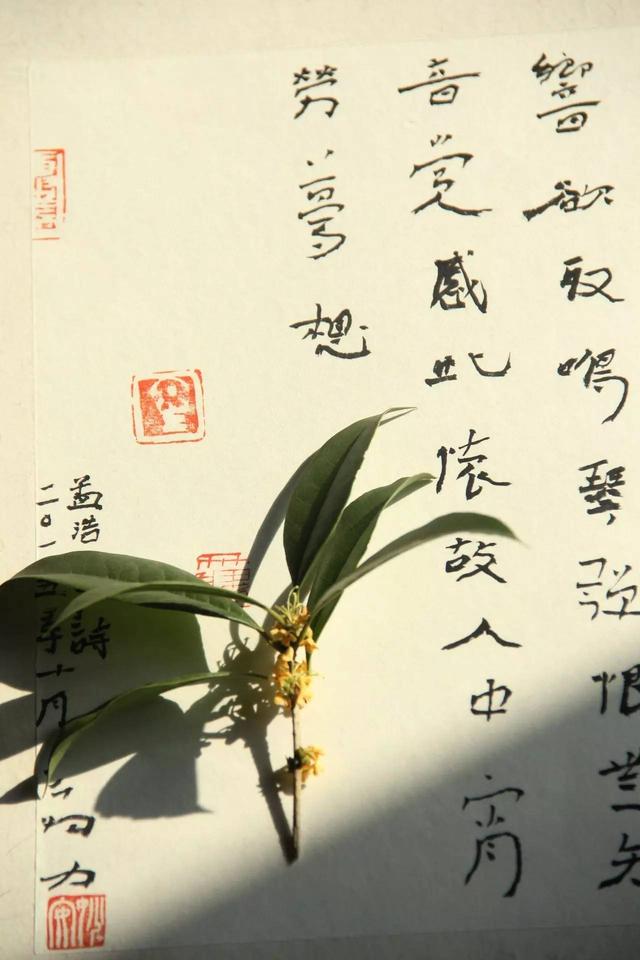 響欲取鳴琴彈恨無知
音賞感此懷故人中宵
勞夢想
孟浩詩
二〇一年十月力